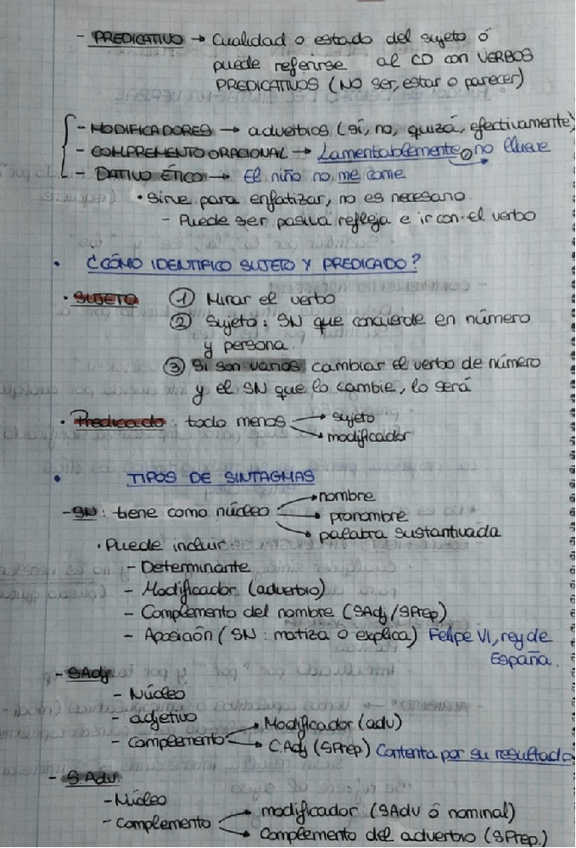 - PREDICATIVO → Cualidad o estado del sujeto ó
puede referirse al CD con VERBOS
PREDICATIVOS (NO ser, estar o parecer)
- MODIFICADORES → adverbios (sí, no, quizá, efectivamente)
- COMPREMENTO ORACIONAL → Lamentablemente, no llueve
- DATIVO ÉTICO → El niño no me come
• Sirve para enfatizar, no es necesario.
- Puede ser pasiva refleja e ir con el verbo
• ¿CÓMO IDENTIFICO SUJETO Y PREDICADO?
• SUJETO ① Mirar el verbo
② Sujeto: SN que concuerde en número
y persona.
③ Si son varios, cambiar el verbo de número
y el SN que lo cambie, lo será
• Predicado: todo menos → sujeto
→ modificador
• TIPOS DE SINTAGMAS
- SN: tiene como núcleo → nombre
→ pronombre
→ palabra sustantivada
• Puede incluir:
- Determinante
- Modificador (adverbio)
- Complemento del nombre (SAdj/SPrep)
- Aposición (SN: matiza o explica) Felipe VI, rey de
España.
- SAdj
- Núcleo
- adjetivo
- complemento → Modificador (adv)
→ CAdj (SPrep) Contenta por su resultado
- SAdv.
- Núcleo
- complemento → modificador (SAdv ó nominal)
→ Complemento del adverbio (SPrep.)